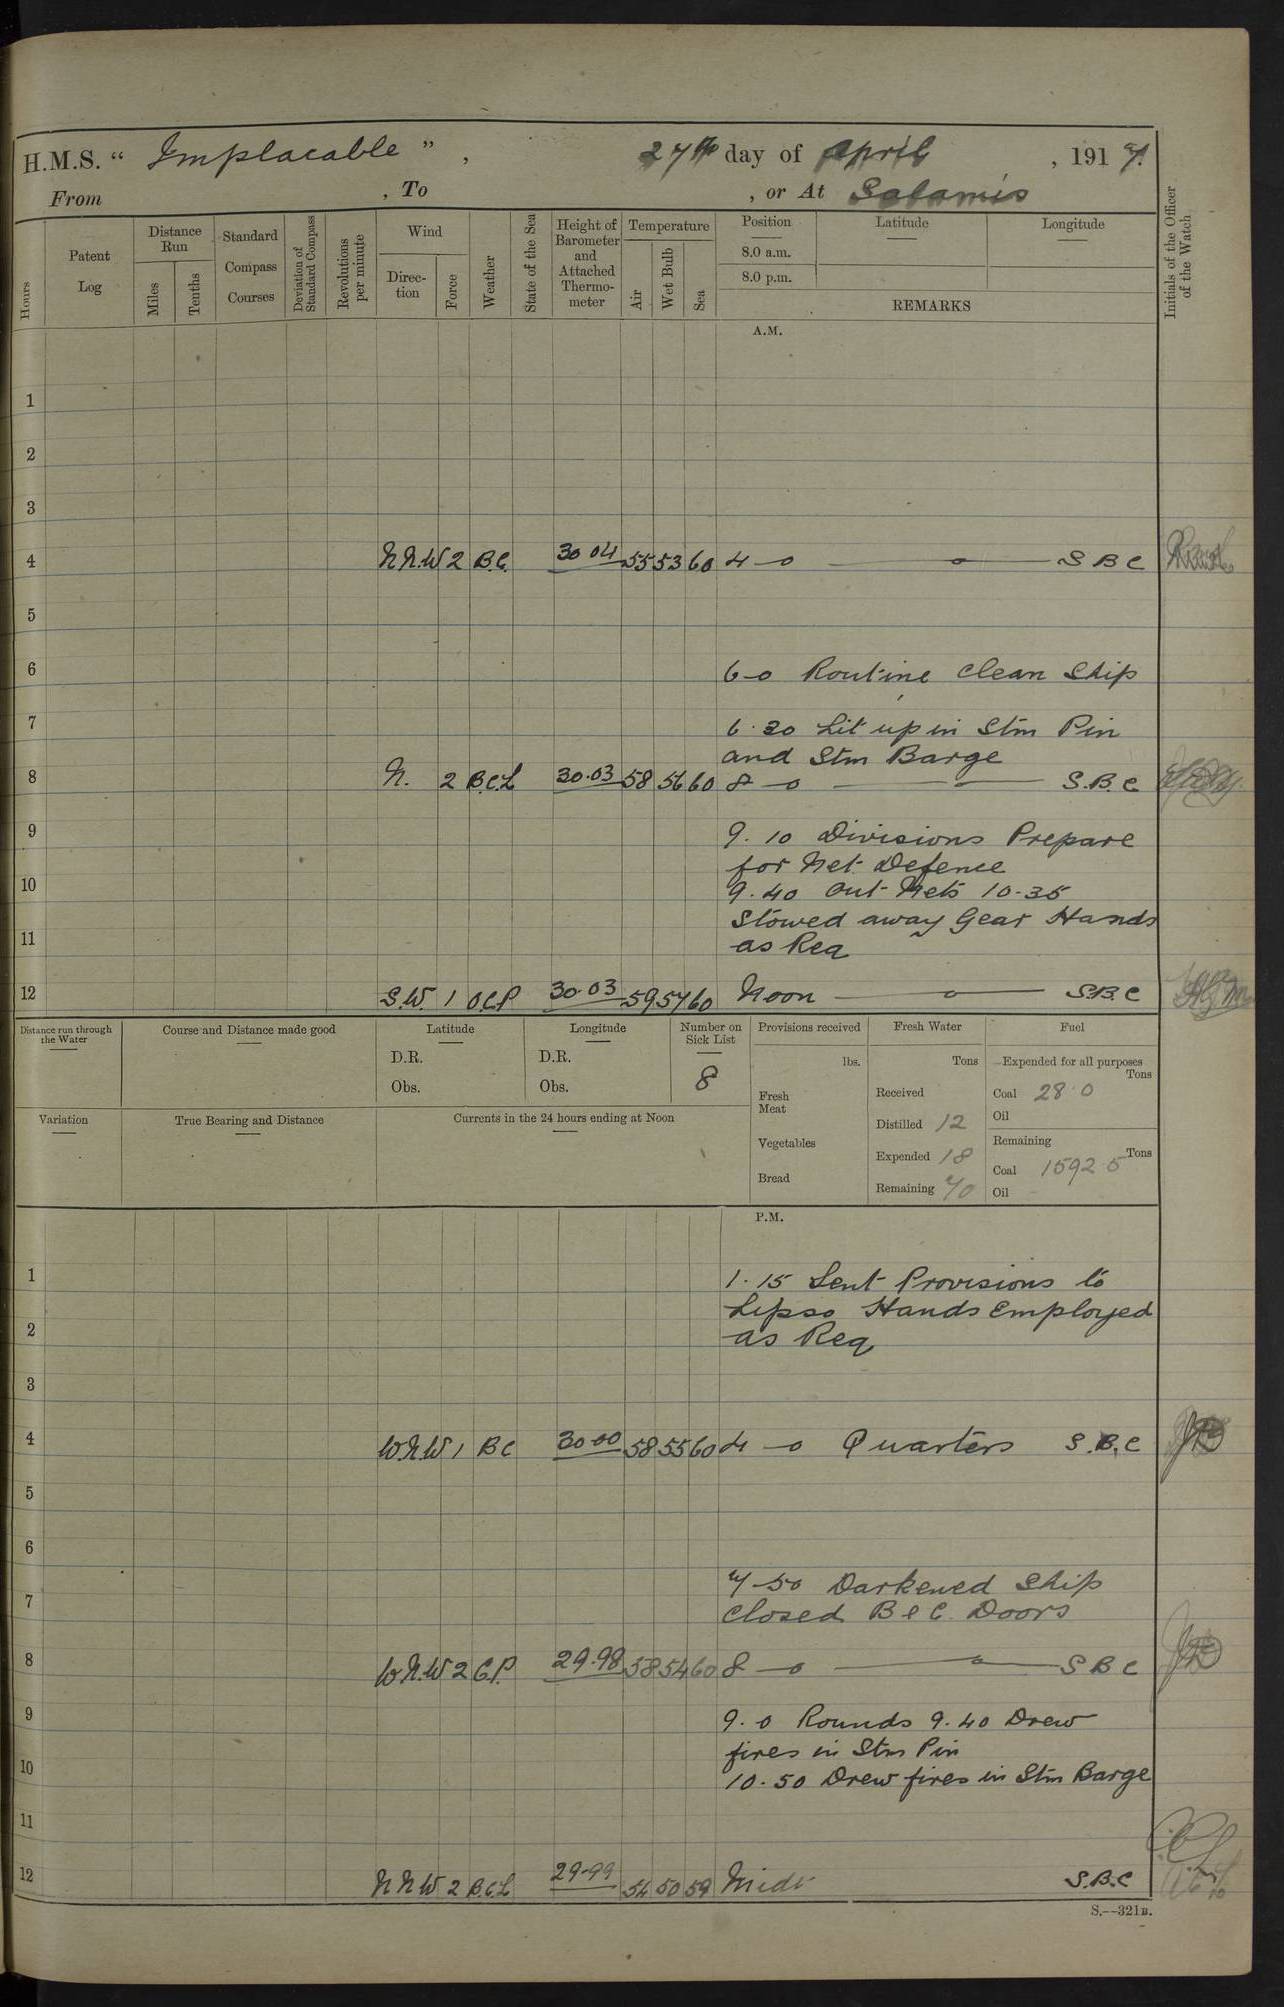 H.M.S. “ Implacable ” , 27th day of April , 1917.
From , To , or At Salamis
Hours
Patent Log
Distance Run
Miles
Tenths
Standard Compass Courses
Deviation of Standard Compass
Revolutions per minute
Wind
Direction
Force
Weather
State of the Sea
Height of Barometer and Attached Thermometer
Temperature
Air
Wet Bulb
Sea
Position Latitude Longitude
8.0 a.m.
8.0 p.m.
REMARKS
Initials of the Officer of the Watch
A.M.
1
2
3
4 N.N.W 2 B.C. 30 04 55 53 60 4-0 S B C
5
6 6-0 Routine Clean Ship
7 6.30 Lit up in Stm Pin
and Stm Barge
8 N. 2 B.C.L 30.03 58 56 60 8-0 S.B.C
9 9.10 Divisions Prepare
for Net Defence
10 9.40 Out Nets 10-35
Stowed away Gear Hands
11 as Req
12 S.W. 1 O.C.P 30.03 59 57 60 Noon S.B.C
Distance run through the Water
Course and Distance made good
Latitude
D.R.
Obs.
Longitude
D.R.
Obs.
Number on Sick List
8
Provisions received
lbs.
Fresh Meat
Vegetables
Bread
Fresh Water
Tons
Received
Distilled 12
Expended 18
Remaining 70
Fuel
Expended for all purposes
Tons
Coal 28.0
Oil
Remaining
Tons
Coal 1592 5
Oil
Variation
True Bearing and Distance
Currents in the 24 hours ending at Noon
P.M.
1 1.15 Sent Provisions to
Lipso Hands Employed
2 as Req
3
4 W.N.W 1 B C 30.00 58 55 60 4-0 Quarters S.B.C
5
6
7-50 Darkened Ship
7 Closed B & C. Doors
8 W.N.W 2 C.P. 29.98 58 54 60 8-0 S B C
9 9.0 Rounds 9.40 Drew
fires in Stm Pin
10 10.50 Drew fires in Stm Barge
11
12 N N W 2 B.C.L 29.99 54 50 59 Midt S.B.C
S.—321B.